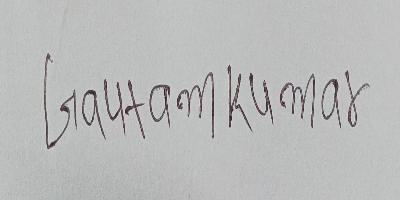 Gautam kumar